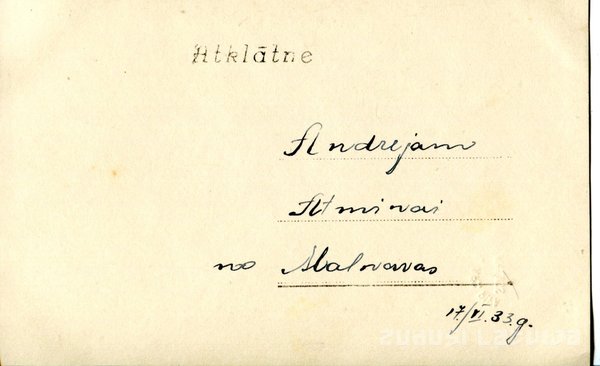 Atklātne
Andrejam
Atminai
no Malvavas
17/VI.33.g.